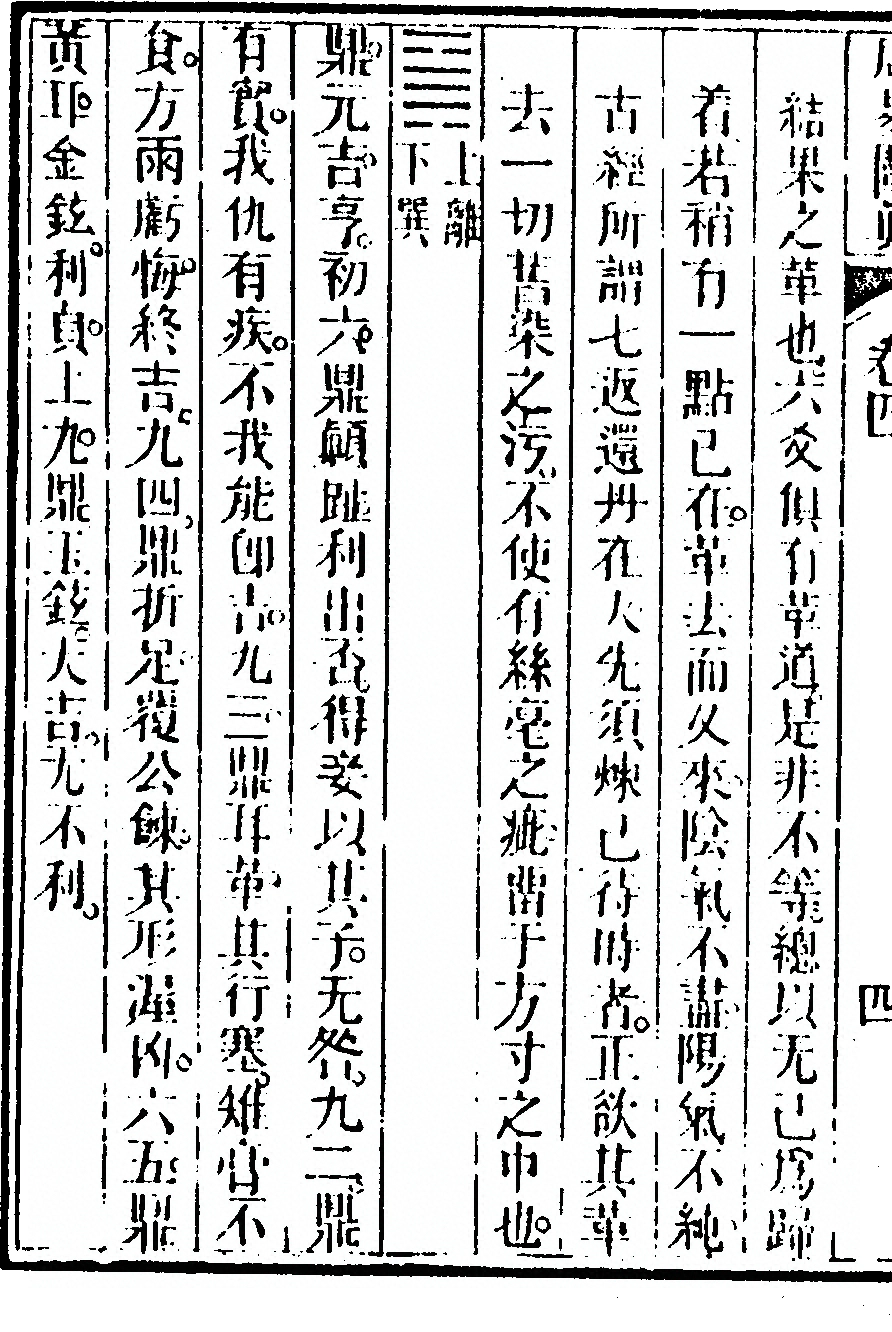 卷四
四
結果之革也。六爻俱有革道是非不等。總以无己爲歸
着若稍有一點己在。革去而又來。陰氣不盡。陽氣不純。
古經所謂七返還丹在人先須煉己待時者。正欲其革
去一切舊染之污。不使有絲毫之疵留于方寸之中也。
䷱
上離
下巽
鼎。元吉。亨。初六。鼎顛趾利出否。得妾以其子。无咎。九二。鼎
有實。我仇有疾。不我能即。吉。九三。鼎耳革。其行塞。雉膏不
食。方雨虧悔。終吉。九四。鼎折足。覆公餗。其形渥。凶。六五。鼎
黃耳。金鉉。利貞。上九。鼎玉鉉。大吉。无不利。